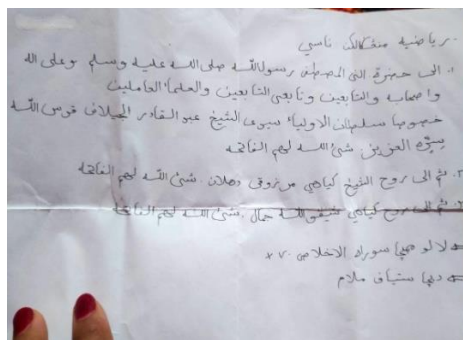 . رياضيه منفكالكن ناسي
١. الى حضرة النبى المصطفى رسول الله صلى الله عليه وسلم وعلى اله
واصحابه والتابعين وتابعى التابعين والعلماء العاملين
خصوصا سلطان الاولياء سيدى الشيخ عبد القادر الجيلانى قدس الله
سره العزيز. شئ لله لهم الفاتحه
٢. ثم الى روح الشيخ كياهي مرزوقى دهلان. شئ لله لهم الفاتحه
٣. ثم الى روح كياهي جمال. شئ لله لهم الفاتحه
لالو مهچا سورة الاخلاص ٧٠ ×
دبچا ستياف ملام